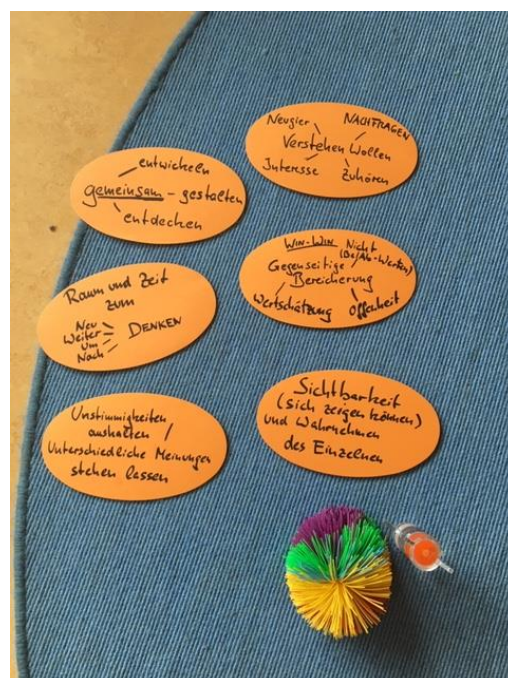 entwickeln
gemeinsam - gestalten
entdecken
Neugier NACHFRAGEN
Verstehen Wollen
Interesse Zuhören
Raum und Zeit
zum
Neu
Weiter DENKEN
Um
Nach
WIN-WIN Nicht
(Be/Ab-Werten)
Gegenseitige
Bereicherung
Wertschätzung Offenheit
Unstimmigkeiten
aushalten /
Unterschiedliche Meinungen
stehen lassen
Sichtbarkeit
(sich zeigen können)
und Wahrnehmen
des Einzelnen